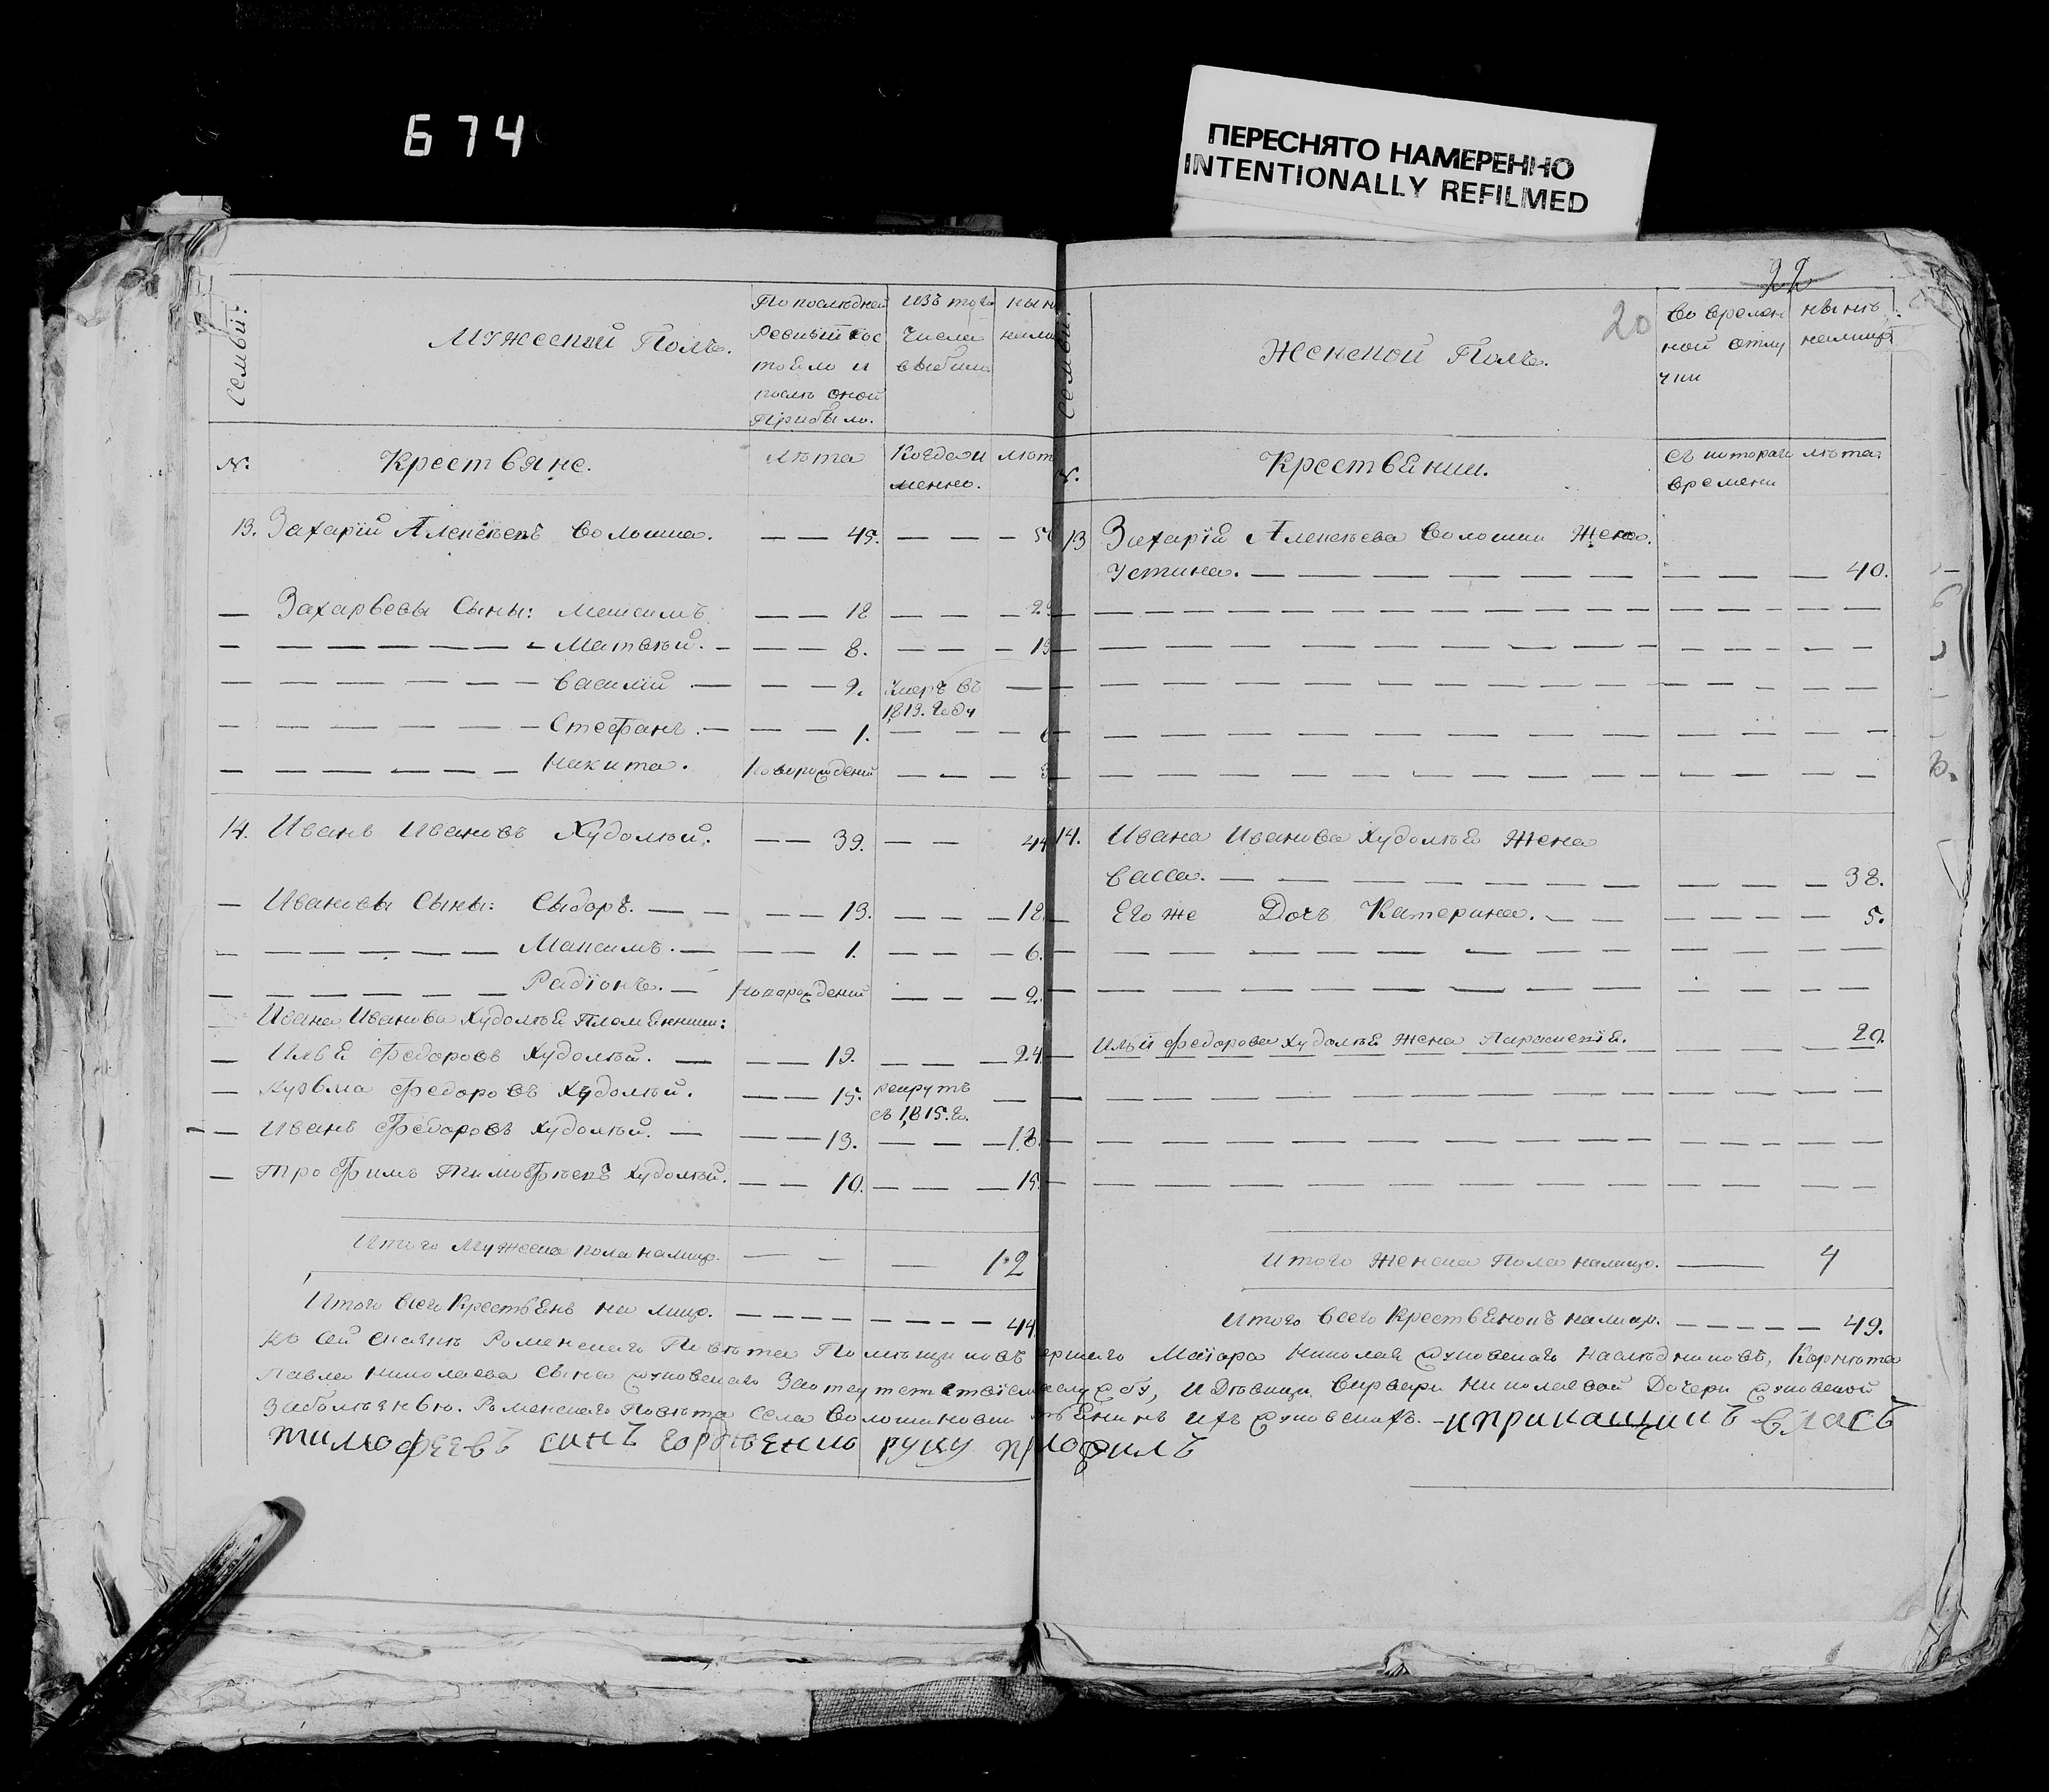 674
ПЕРЕСНЯТО НАМЕРЕННО
INTENTIONALLY REFILMED
Семьи:
Мужеский Полъ.
По последней
Ревизіи сос
тояло и
после оной
Прибыло.
Изъ того
числа
выбыло
№.
Крестьяне.
лета
Когда и
менно.
13. Захарій Алексеевъ Волошин. — — 45. — — —
— Захарьевы Сыны: Максимъ — — 18 — — —
— — — — — — — Матвей. — — — 8. — — —
— — — — — — — Василій — — — 9. умеръ въ
1819. году
— — — — — — — Стефанъ. — — — 1. — — —
— — — — — — Никита. Новорожденій — — —
14. Иванъ Ивановъ Худолей. — — 39. — — 44
— Ивановы Сыны: Сыдоръ. — — — — 13. — — — 18.
— — — — — — — Максимъ. — — — 1. — — — 6.
— — — — — — — Радіонъ. — Новорожденій — — — 2.
Ивана Иванова Худолея Племянники:
— Илья Федоровъ Худолей. — — — 19. — — — 24.
— Кузьма Федоровъ Худолей. — — 15. рекрутъ
съ 1815. го.
— Иванъ Федоровъ Худолей. — — — 13. — — — 18.
— Трофимъ Тимофеевъ Худолей. — — 10. — — — 15.
Итого Мужеска пола налицо. — — — 12
Итого всего Крестьянъ на лицо. — — — — — — — — 44.
22
20
Семьи:
Женской Полъ.
Во времен
ной отлу
чки
ныне
налицо
№.
Крестьянки.
съ котораго
времени
лета.
13 Захарій Алексеева Волошин Жена.
Устина. — — — — — — — — — — — 40.
14. Ивана Иванова Худолея Жена
Васса. — — — — — — — — — — — 38.
Его же Дочь Катерина. — — — — — — — 5.
Ильи Федорова Худолея Жена Параскевія. — — — 20.
Итого Женска Пола налицо. — 4
Итого всего Крестьянокъ налицо. — — — — — 49.
Къ сей сказке Роменскаго Повета Помещиковъ Маіора Николая наследниковъ, Корнета
Павла Николаева сына За и Девицы Варвары Николаевой Дочери
За болезнью. Роменскаго Повета села Волошиновки ихъ - и прикащикъ Власъ
Тимофеевъ синъ руку приложилъ